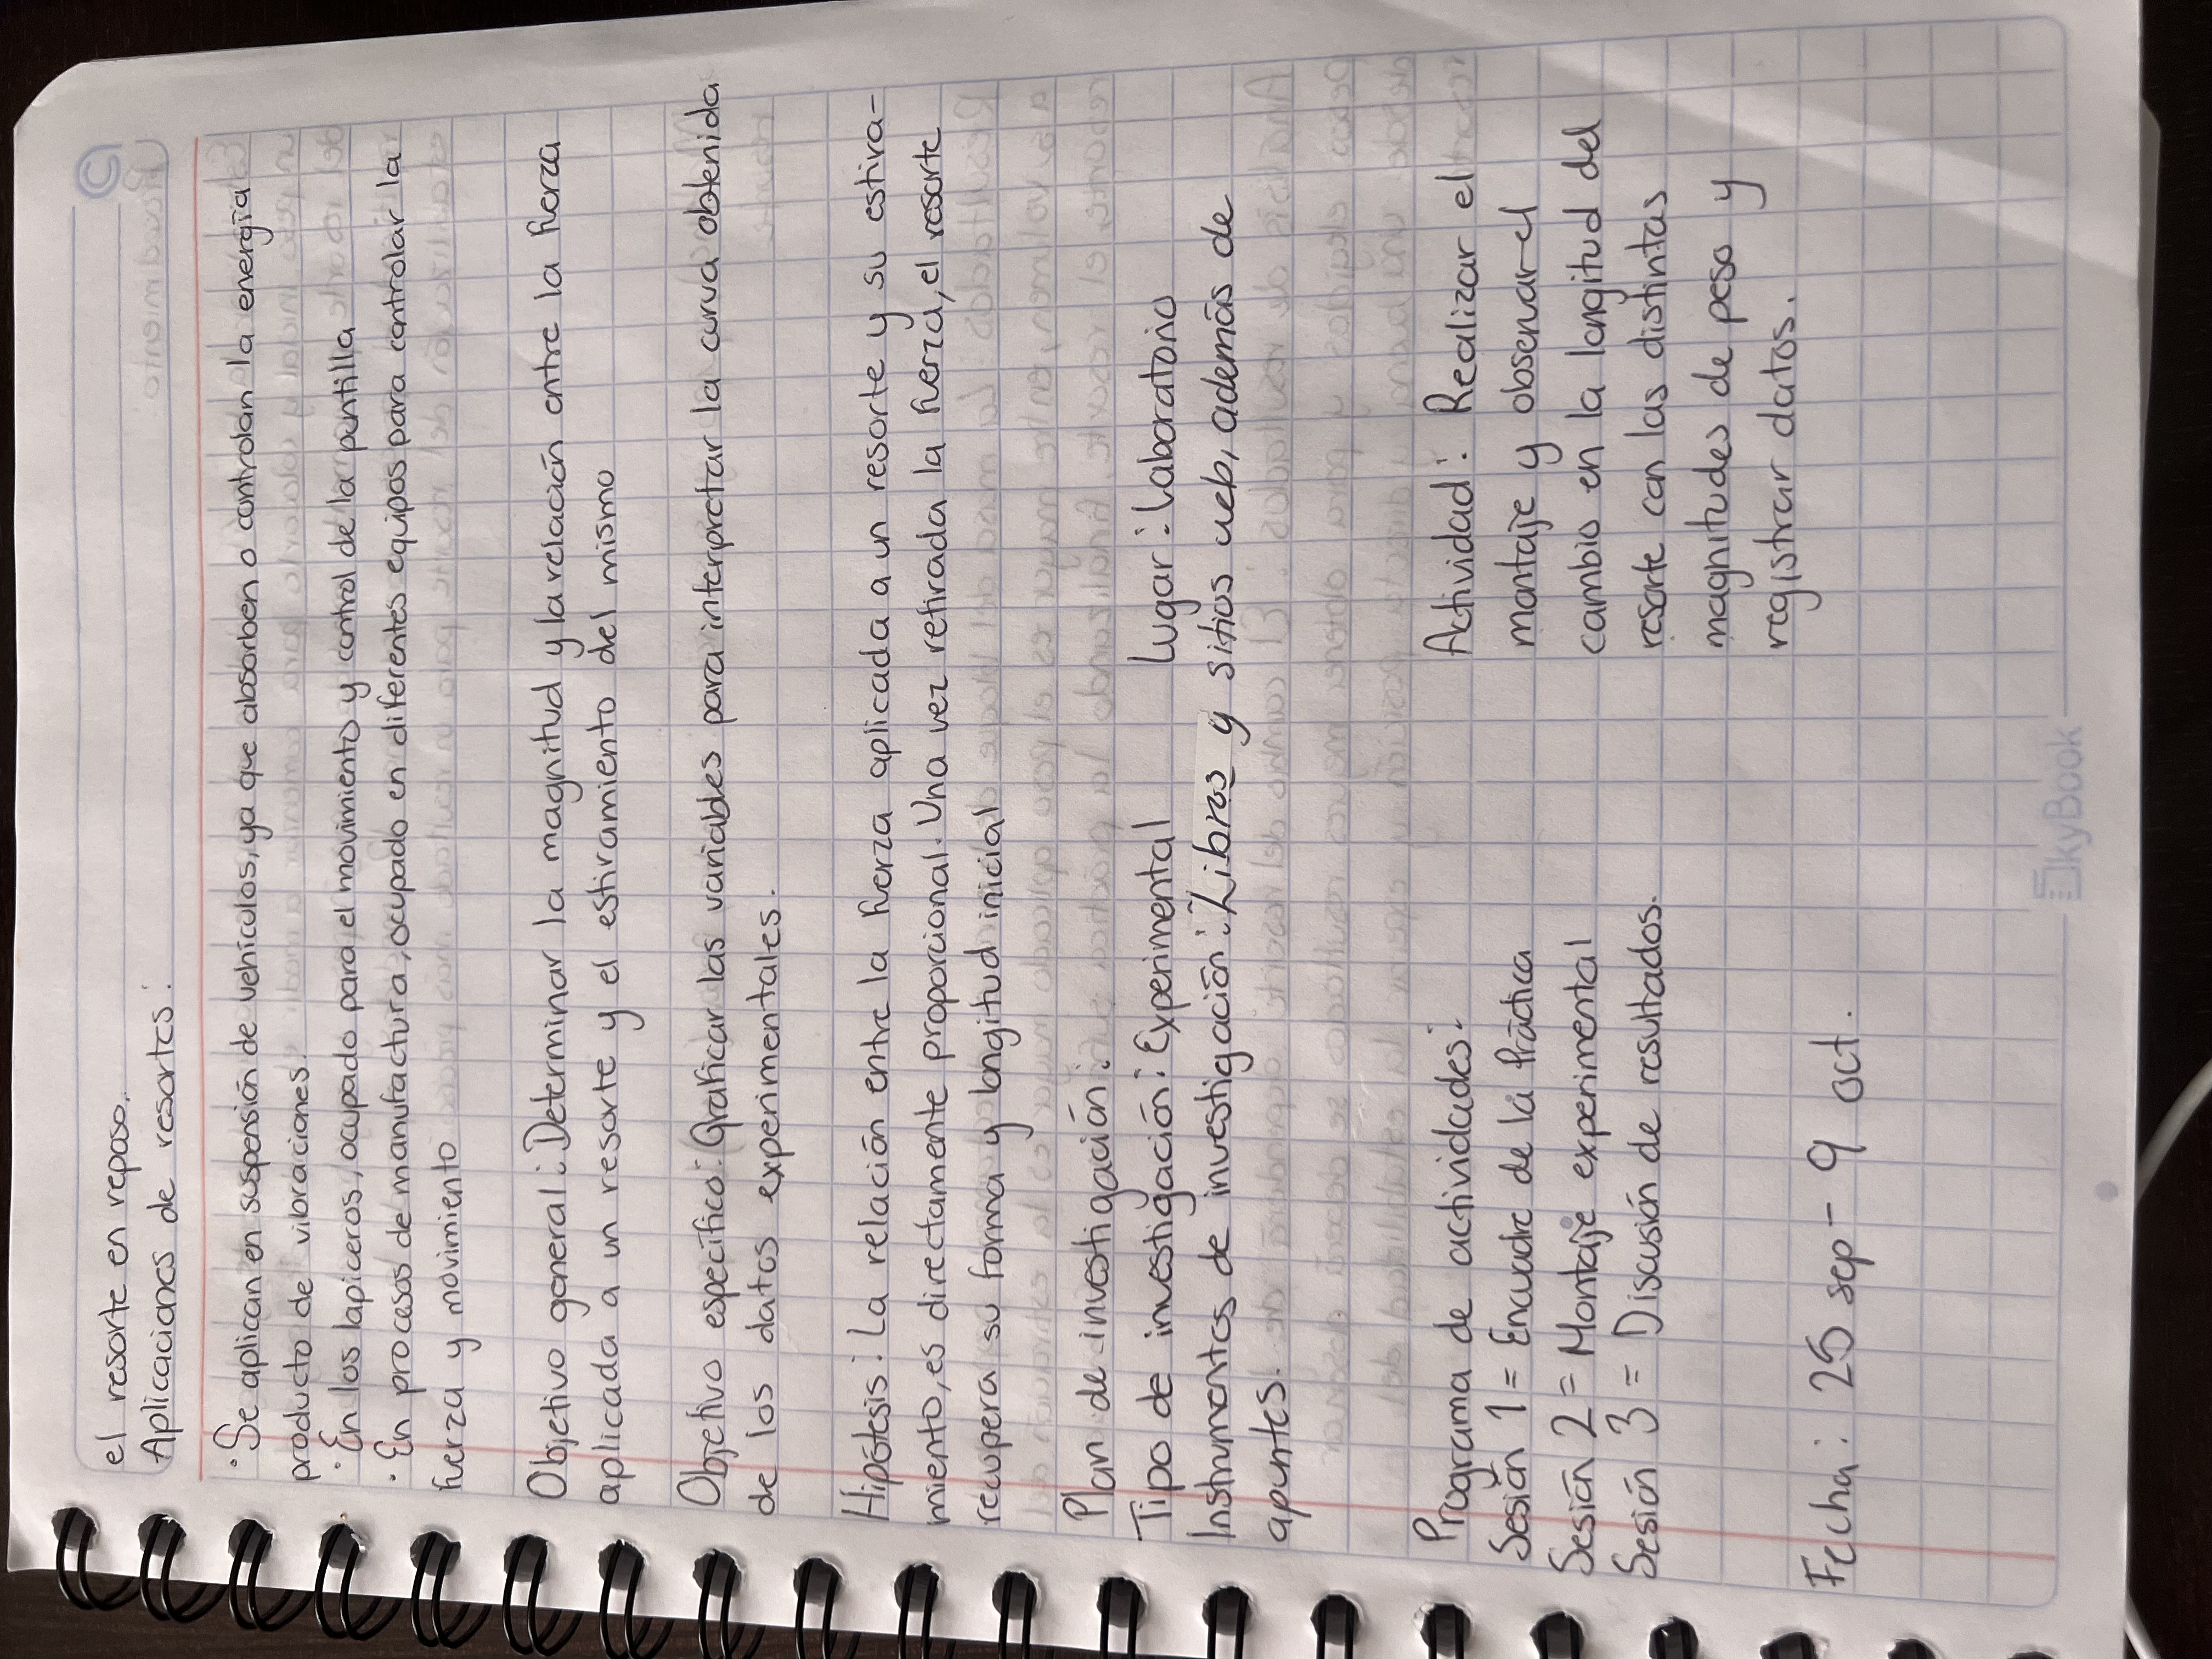 el resorte en reposo.
Aplicaciones de resortes:
· Se aplican en suspensión de vehículos, ya que absorben o controlan la energía
producto de vibraciones.
· En los lapiceros, ocupado para el movimiento y control de la puntilla
· En procesos de manufactura, ocupado en diferentes equipos para controlar la
fuerza y movimiento
Objetivo general: Determinar la magnitud y la relación entre la fuerza
aplicada a un resorte y el estiramiento del mismo
Objetivo específico: Graficar las variables para interpretar la curva obtenida
de los datos experimentales.
Hipótesis: La relación entre la fuerza aplicada a un resorte y su estira-
miento, es directamente proporcional. Una vez retirada la fuerza, el resorte
recupera su forma y longitud inicial
Plan de investigación:
Tipo de investigación: Experimental Lugar: Laboratorio
Instrumentos de investigación: Libros y sitios web, además de
apuntes.
Programa de actividades:
Sesión 1 = Encuadre de la Práctica
Sesión 2 = Montaje experimental
Sesión 3 = Discusión de resultados.
Actividad: Realizar el
montaje y observar el
cambio en la longitud del
resorte con las distintas
magnitudes de peso y
registrar datos.
Fecha: 25 sep - 9 oct.
SkyBook